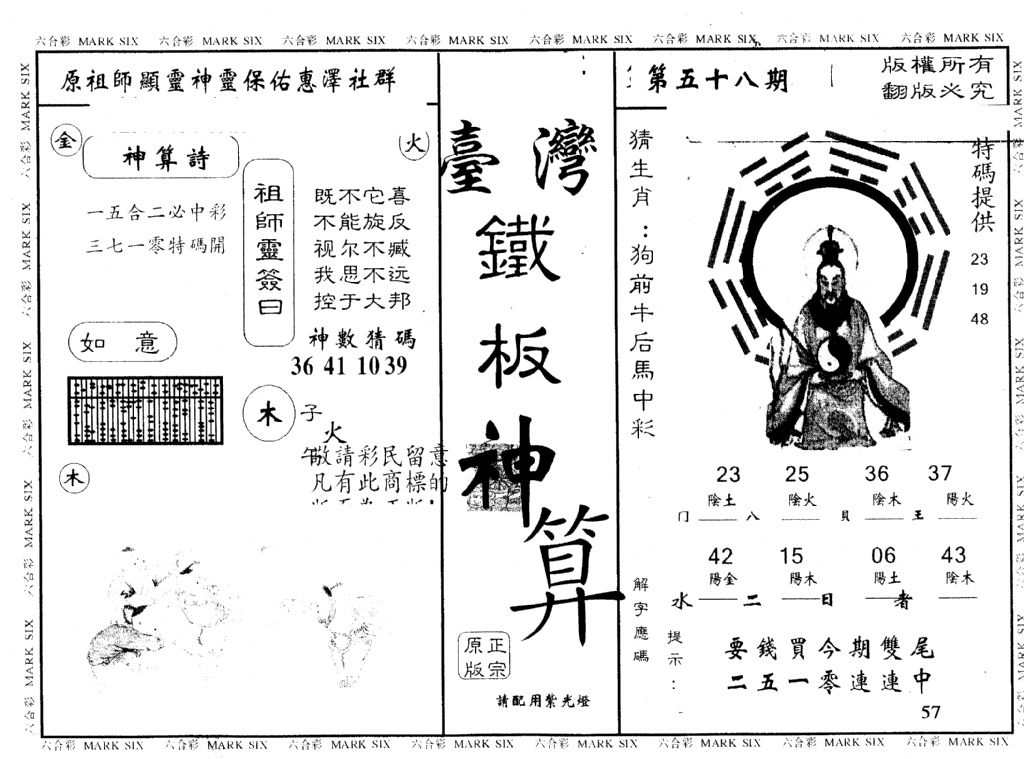 六合彩 MARK SIX 六合彩 MARK SIX 六合彩 MARK SIX 六合彩 MARK SIX 六合彩 MARK SIX 六合彩 MARK SIX 六合彩 MARK SIX 六合彩 MARK SIX
原祖師顯靈神靈保佑惠澤社群
金
火
神算詩
一五合二必中彩
三七一零特碼開
祖師靈簽曰
既不它喜
不能旋反
视尔不臧
我思不远
控于大邦
神數猜碼
36 41 10 39
如意
木
子
火
午
敬請彩民留意
凡有此商標的
木
臺灣
鐵
板
神
算
正宗
原版
請配用紫光燈
第五十八期
版權所有
翻版必究
猜生肖:狗前牛后馬中彩
特碼提供
23
19
48
23 25 36 37
陰土 陰火 陰木 陽火
门 八 貝 王
42 15 06 43
陽金 陽木 陽土 陰木
水 二 日 者
解字應碼
提示:
要錢買今期雙尾
二五一零連連中
57
六合彩 MARK SIX 六合彩 MARK SIX 六合彩 MARK SIX 六合彩 MARK SIX 六合彩 MARK SIX 六合彩 MARK SIX 六合彩 MARK SIX 六合彩 MARK SIX
六合彩 MARK SIX 六合彩 MARK SIX 六合彩 MARK SIX 六合彩 MARK SIX 六合彩 MARK SIX
六合彩 MARK SIX 六合彩 MARK SIX 六合彩 MARK SIX 六合彩 MARK SIX 六合彩 MARK SIX